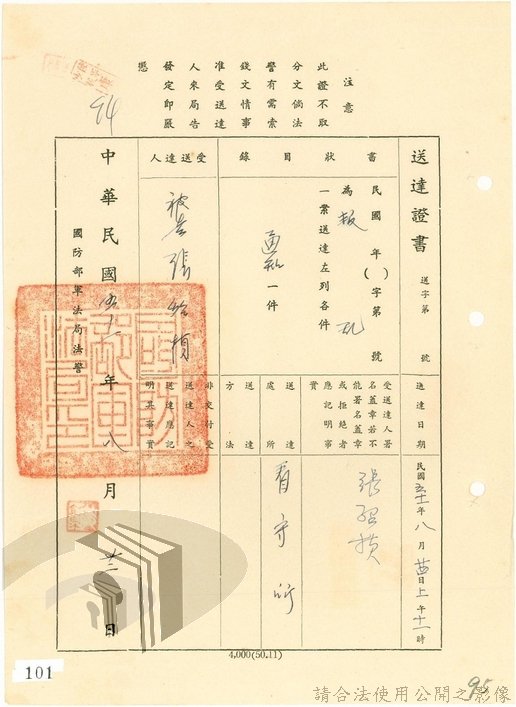 注意
此證不取
分文倘法
警有需索
錢文情事
准受送達
人來局告
發定即嚴
懲
94
送達證書
送字第 號
書狀目錄
民國 年( )字第 號
為叛亂
一案送達左列各件
通知一件
受送達人
被告張
中華民國五十一年八月廿三日
國防部軍法局法警
送達日期
民國五十一年八月廿日上午十一時
受送達人署
名蓋章若不
能署名蓋章
或拒絕者
應記明事
實
送達處所
看守所
送達方法
非交付受
送達人之
送達應記
明其事實
4,000(50.11)
101
95
請合法使用公開之影像